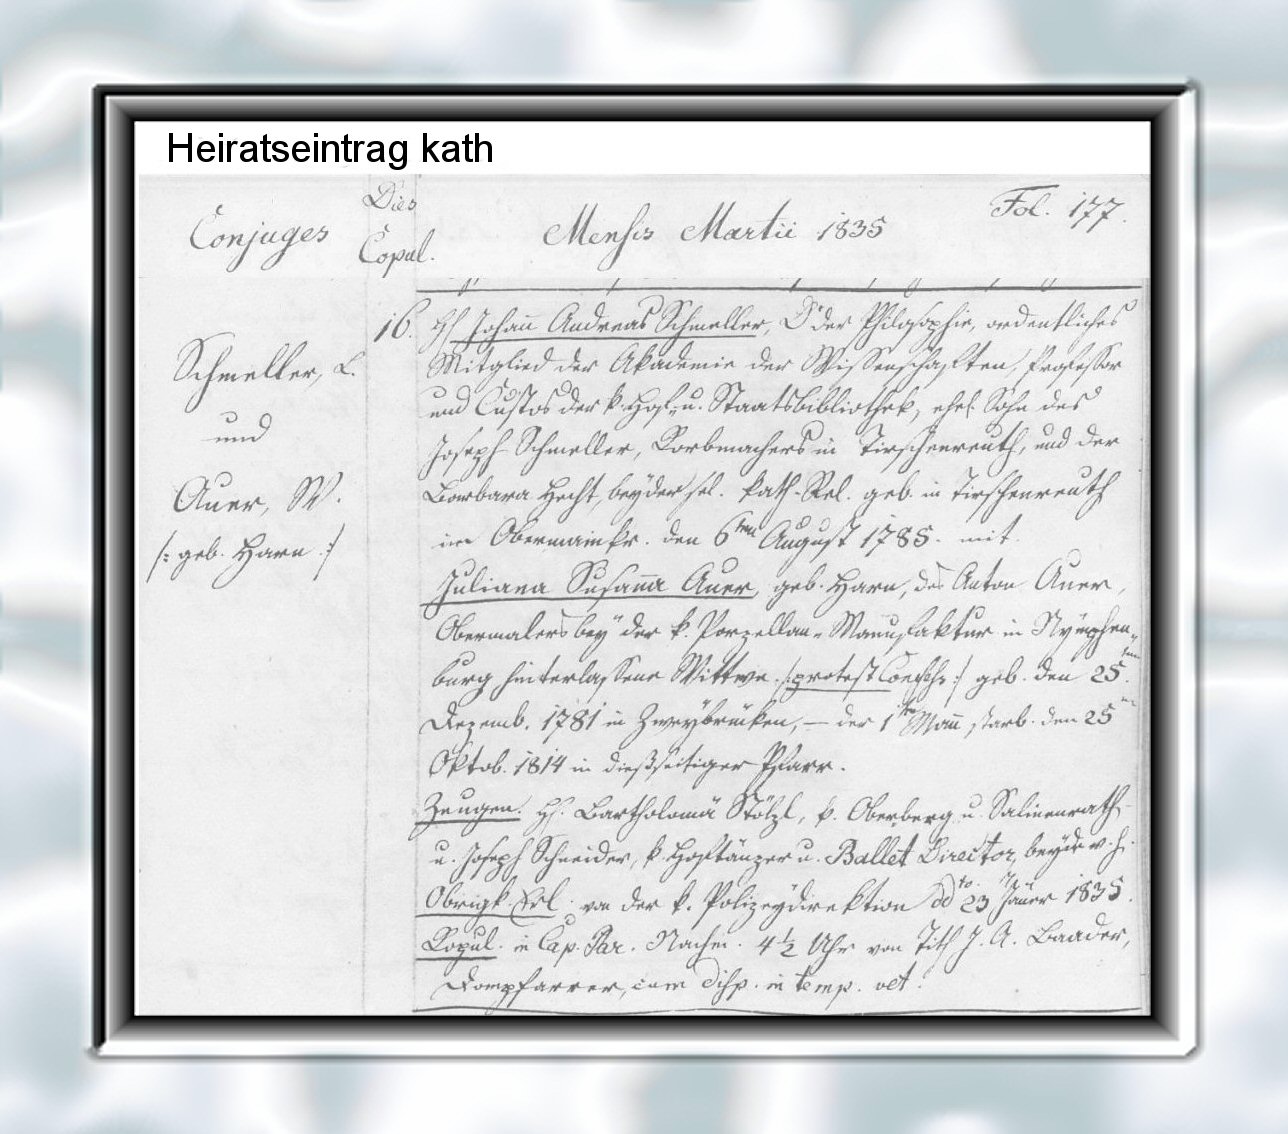 Heiratseintrag kath
Conjuges
Dies
Copul.
Mensis Martii 1835
Fol. 177.
Schmeller, L.
und
Auer, W.
/: geb. Harn :/
16. H. Johann Andreas Schmeller, Dr der Philosophie, ordentliches
Mitglied der Akademie der Wissenschaften, Professor
und Custos der k. Hof- u. Staatsbibliothek, ehel. Sohn des
Joseph Schmeller, Korbmachers in Tirschenreuth, und der
Barbara Hecht, beyder sel. kath. Rel. geb. in Tirschenreuth
im Obermainkr. den 6ten August 1785. mit
Juliana Susanna Auer, geb. Harn, des Anton Auer,
Obermalers bey der k. Porzellan-Manufaktur in Nymphen-
burg hinterlassene Wittwe /: protest. :/ geb. den 25ten
Dezemb. 1781 in Zweybrücken, – der 1te Mann starb den 25ten
Oktob. 1814 in dießseitiger Pfarr.
Zeugen. H. Bartholomä Stölzl, k. Oberberg u. Salinenrath
u. Joseph Schneider, k. Hoftänzer u. Ballet Director, beyde v. h.
Obrigk. Erl. von der k. Polizeydirektion dd to 23 Jäner 1835.
Kopul. in Cap. Par. Nachm. 4 ½ Uhr von Tit. J. A. Baader,
Dompfarrer, cum disp. in temp. vet.